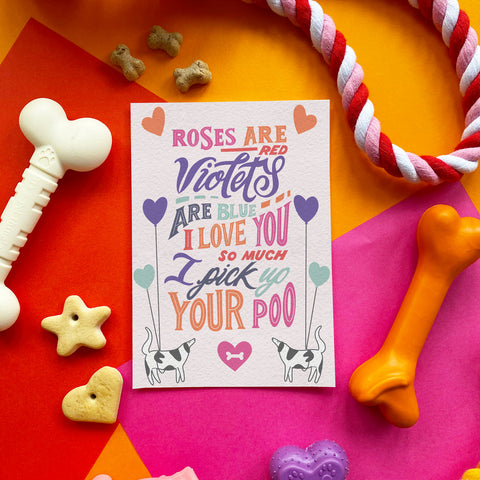 ROSES ARE
RED
Violets
ARE BLUE
I LOVE YOU
SO MUCH
I pick up
YOUR POO